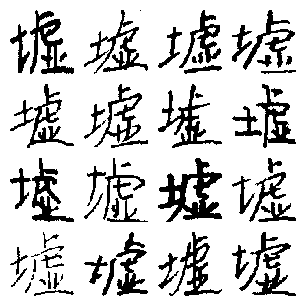 墟墟墟墟
墟墟墟墟
墟墟墟墟
墟墟墟墟